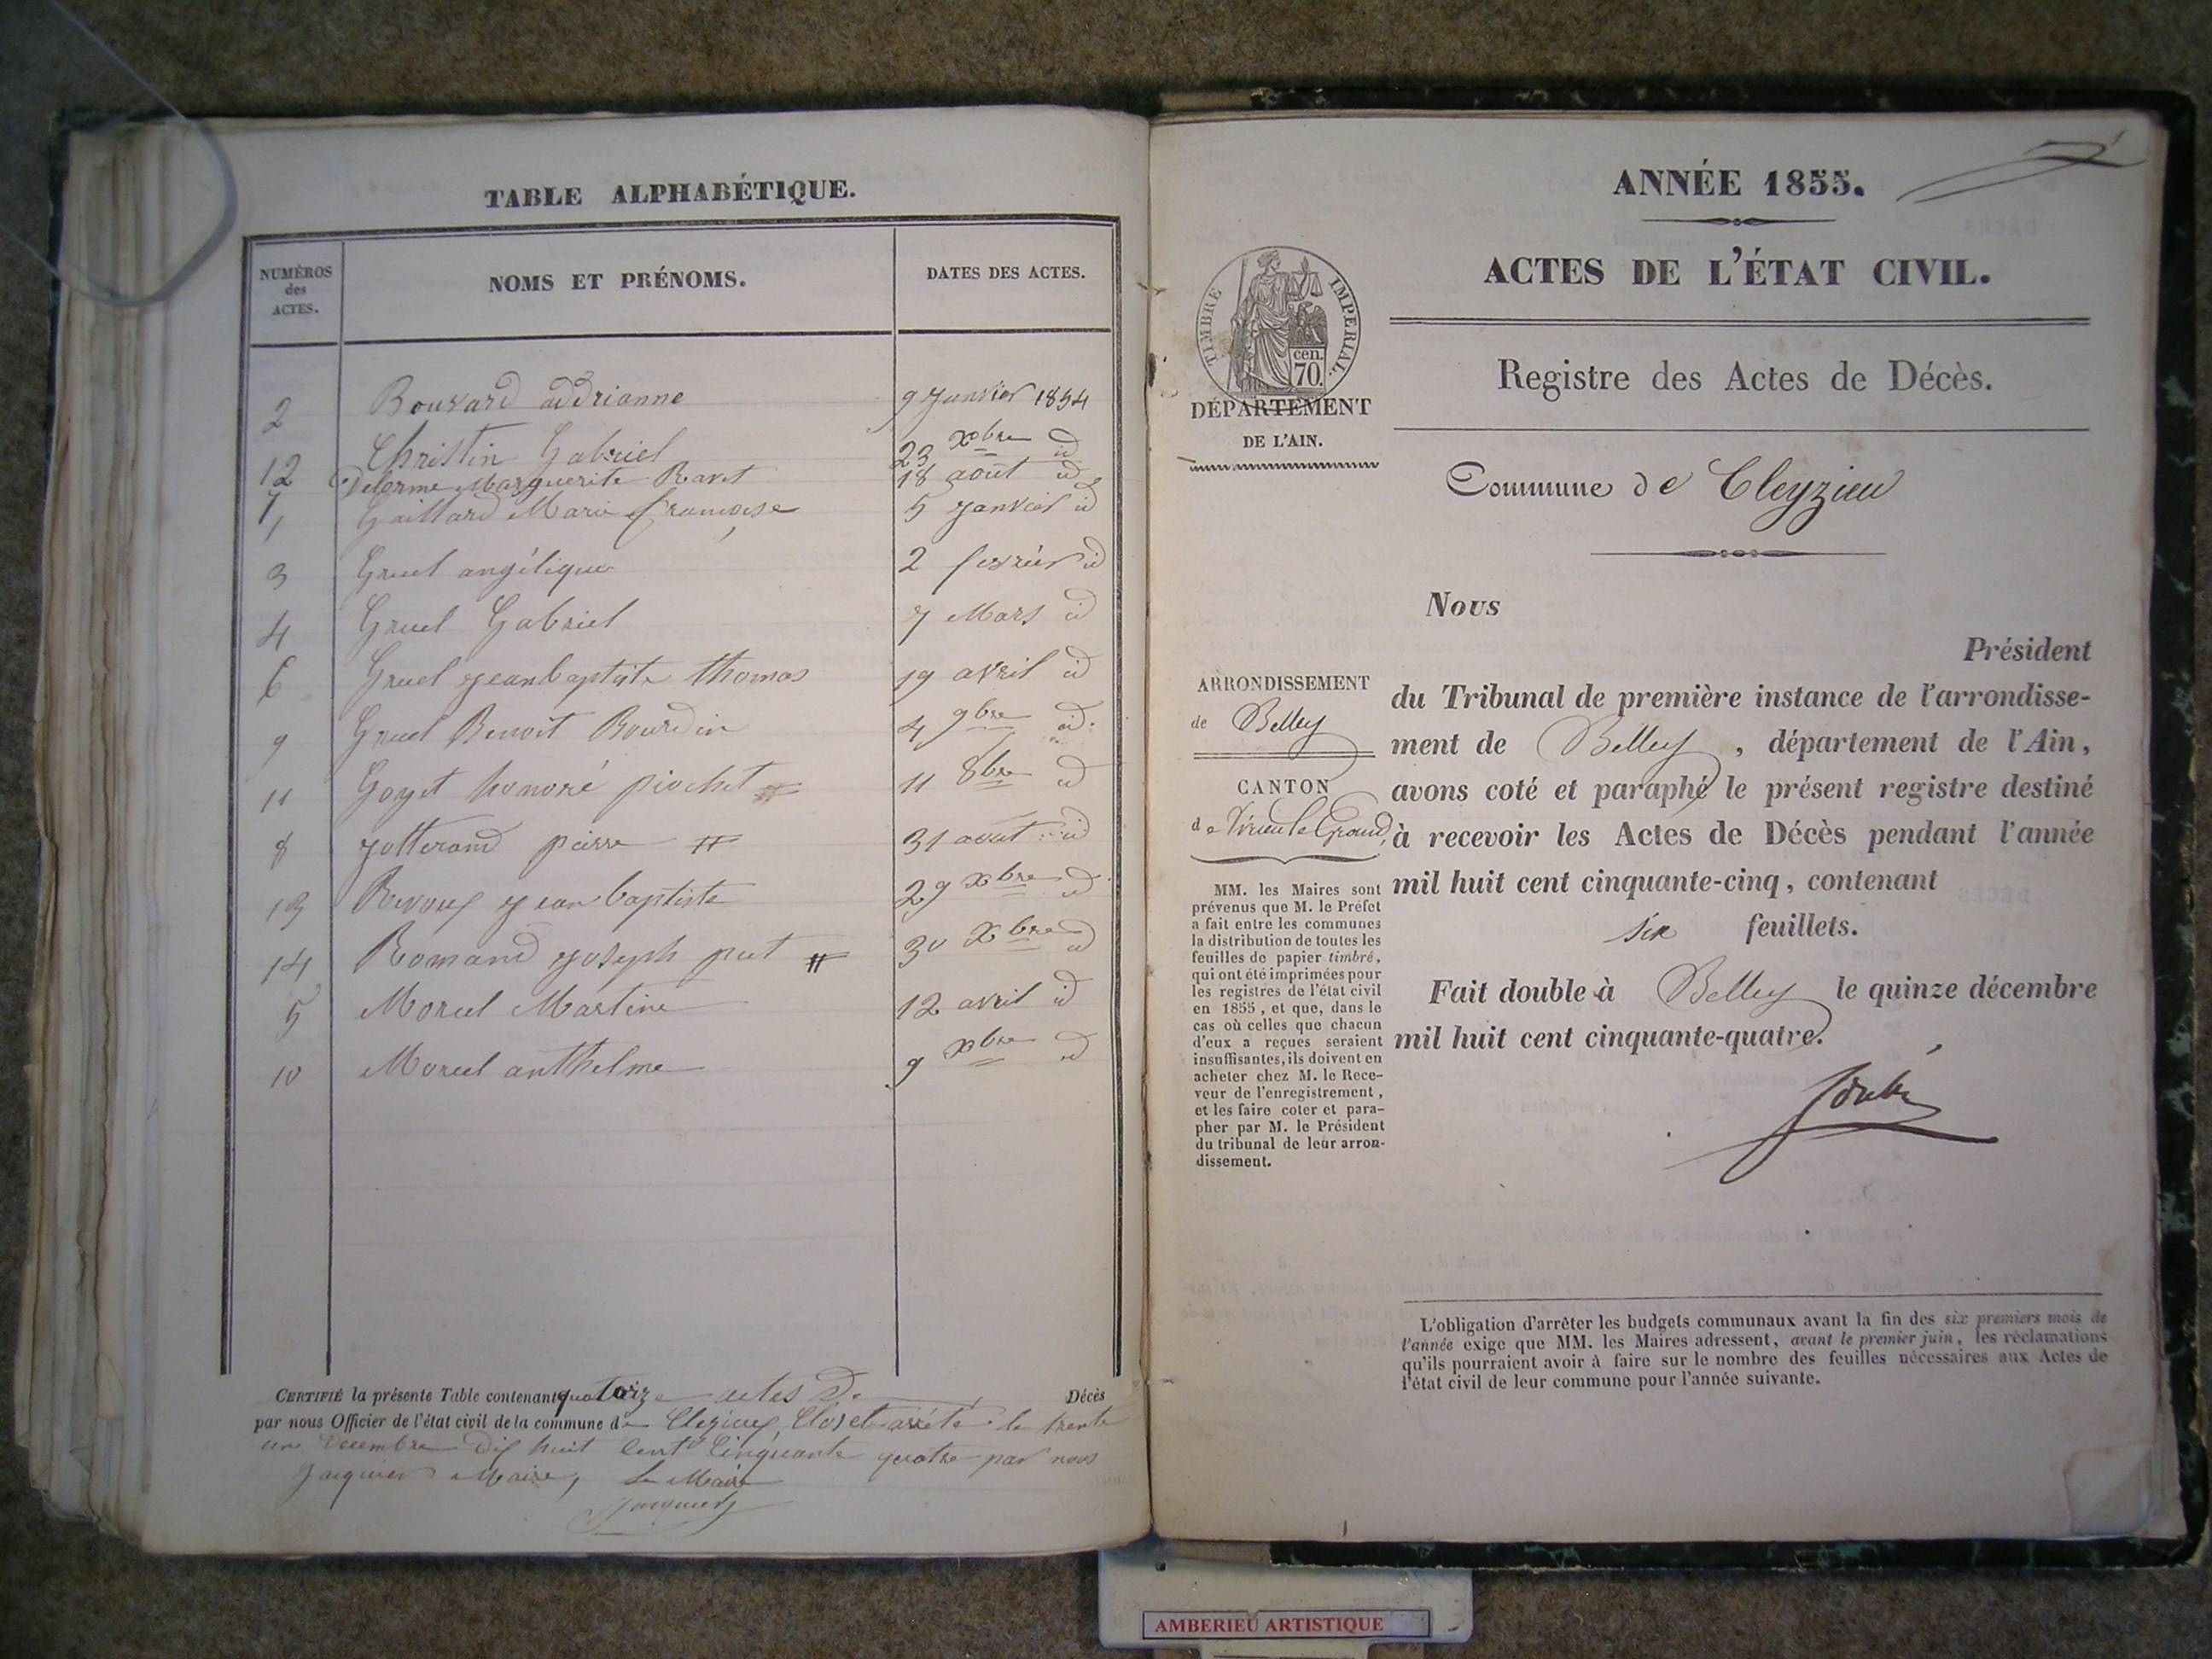 TABLE ALPHABÉTIQUE.
NUMÉROS des ACTES.
NOMS ET PRÉNOMS.
DATES DES ACTES.
2 Bouvard addrianne 9 Janvier 1854
12 Christin Gabriel 23 Xbre id
7 Delorme Marguerite Ravet 18 août id
1 Gaillard Marie françoise 5 Janvier id
3 Gruel angélique 2 fevrier id
4 Gruel Gabriel 7 Mars id
6 Gruel jean baptiste thomas 19 avril id
9 Gruel Benoit Bourdin 4 9bre id.
11 Goyet honoré piochet 11 8bre id
8 jotterand pierre 31 aout id
13 Revoux jean baptiste 29 Xbre id
14 Romand joseph 30 Xbre id
5 Morel Martine 12 avril id
10 Morel anthelme 9 Xbre id
CERTIFIÉ la présente Table contenant quatorze actes de Décès
par nous Officier de l'état civil de la commune de Cleyzieux, Clos et arrété le trente
un Decembre Dix huit Cent Cinquante quatre par nous
Jacquier Maire, Le Maire
Jacquier
ANNÉE 1855.
ACTES DE L'ÉTAT CIVIL.
TIMBRE IMPERIAL
cen.
70.
DÉPARTEMENT
DE L'AIN.
Registre des Actes de Décès.
Commune de Cleyzieu
Nous
Président
du Tribunal de première instance de l'arrondisse-
ment de Belley, département de l'Ain,
avons coté et paraphé le présent registre destiné
à recevoir les Actes de Décès pendant l'année
mil huit cent cinquante-cinq, contenant
six feuillets.
Fait double à Belley le quinze décembre
mil huit cent cinquante-quatre.
ARRONDISSEMENT
de Belley
CANTON
de Virieu le Grand
MM. les Maires sont
prévenus que M. le Préfet
a fait entre les communes
la distribution de toutes les
feuilles de papier timbré,
qui ont été imprimées pour
les registres de l'état civil
en 1855, et que, dans le
cas où celles que chacun
d'eux a reçues seraient
insuffisantes, ils doivent en
acheter chez M. le Rece-
veur de l'enregistrement,
et les faire coter et para-
pher par M. le Président
du tribunal de leur arron-
dissement.
L'obligation d'arrêter les budgets communaux avant la fin des six premiers mois de
l'année exige que MM. les Maires adressent, avant le premier juin, les réclamations
qu'ils pourraient avoir à faire sur le nombre des feuilles nécessaires aux Actes de
l'état civil de leur commune pour l'année suivante.
AMBERIEU ARTISTIQUE